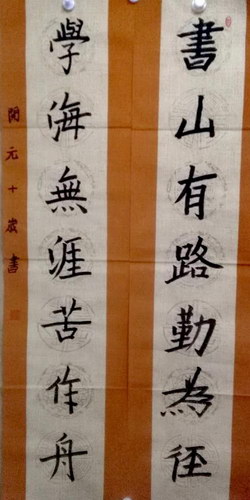 書山有路勤為徑
學海無涯苦作舟
開元十歲書